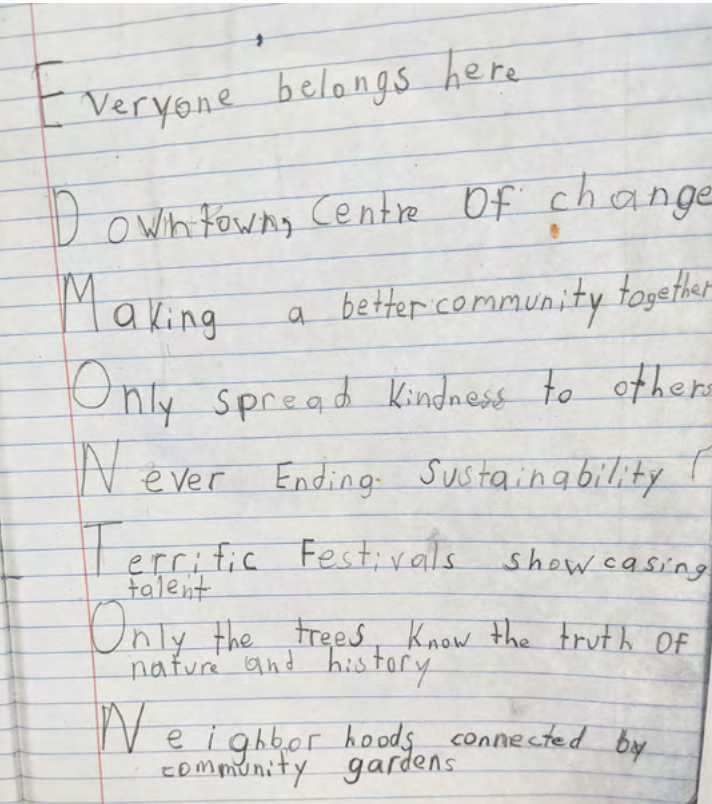 Everyone belongs here
Downtown, Centre Of change
Making a better community together
Only spread kindness to others
Never Ending Sustainability
Terrific Festivals showcasing
talent
Only the trees know the truth Of
nature and history
Neighbor hoods connected by
community gardens